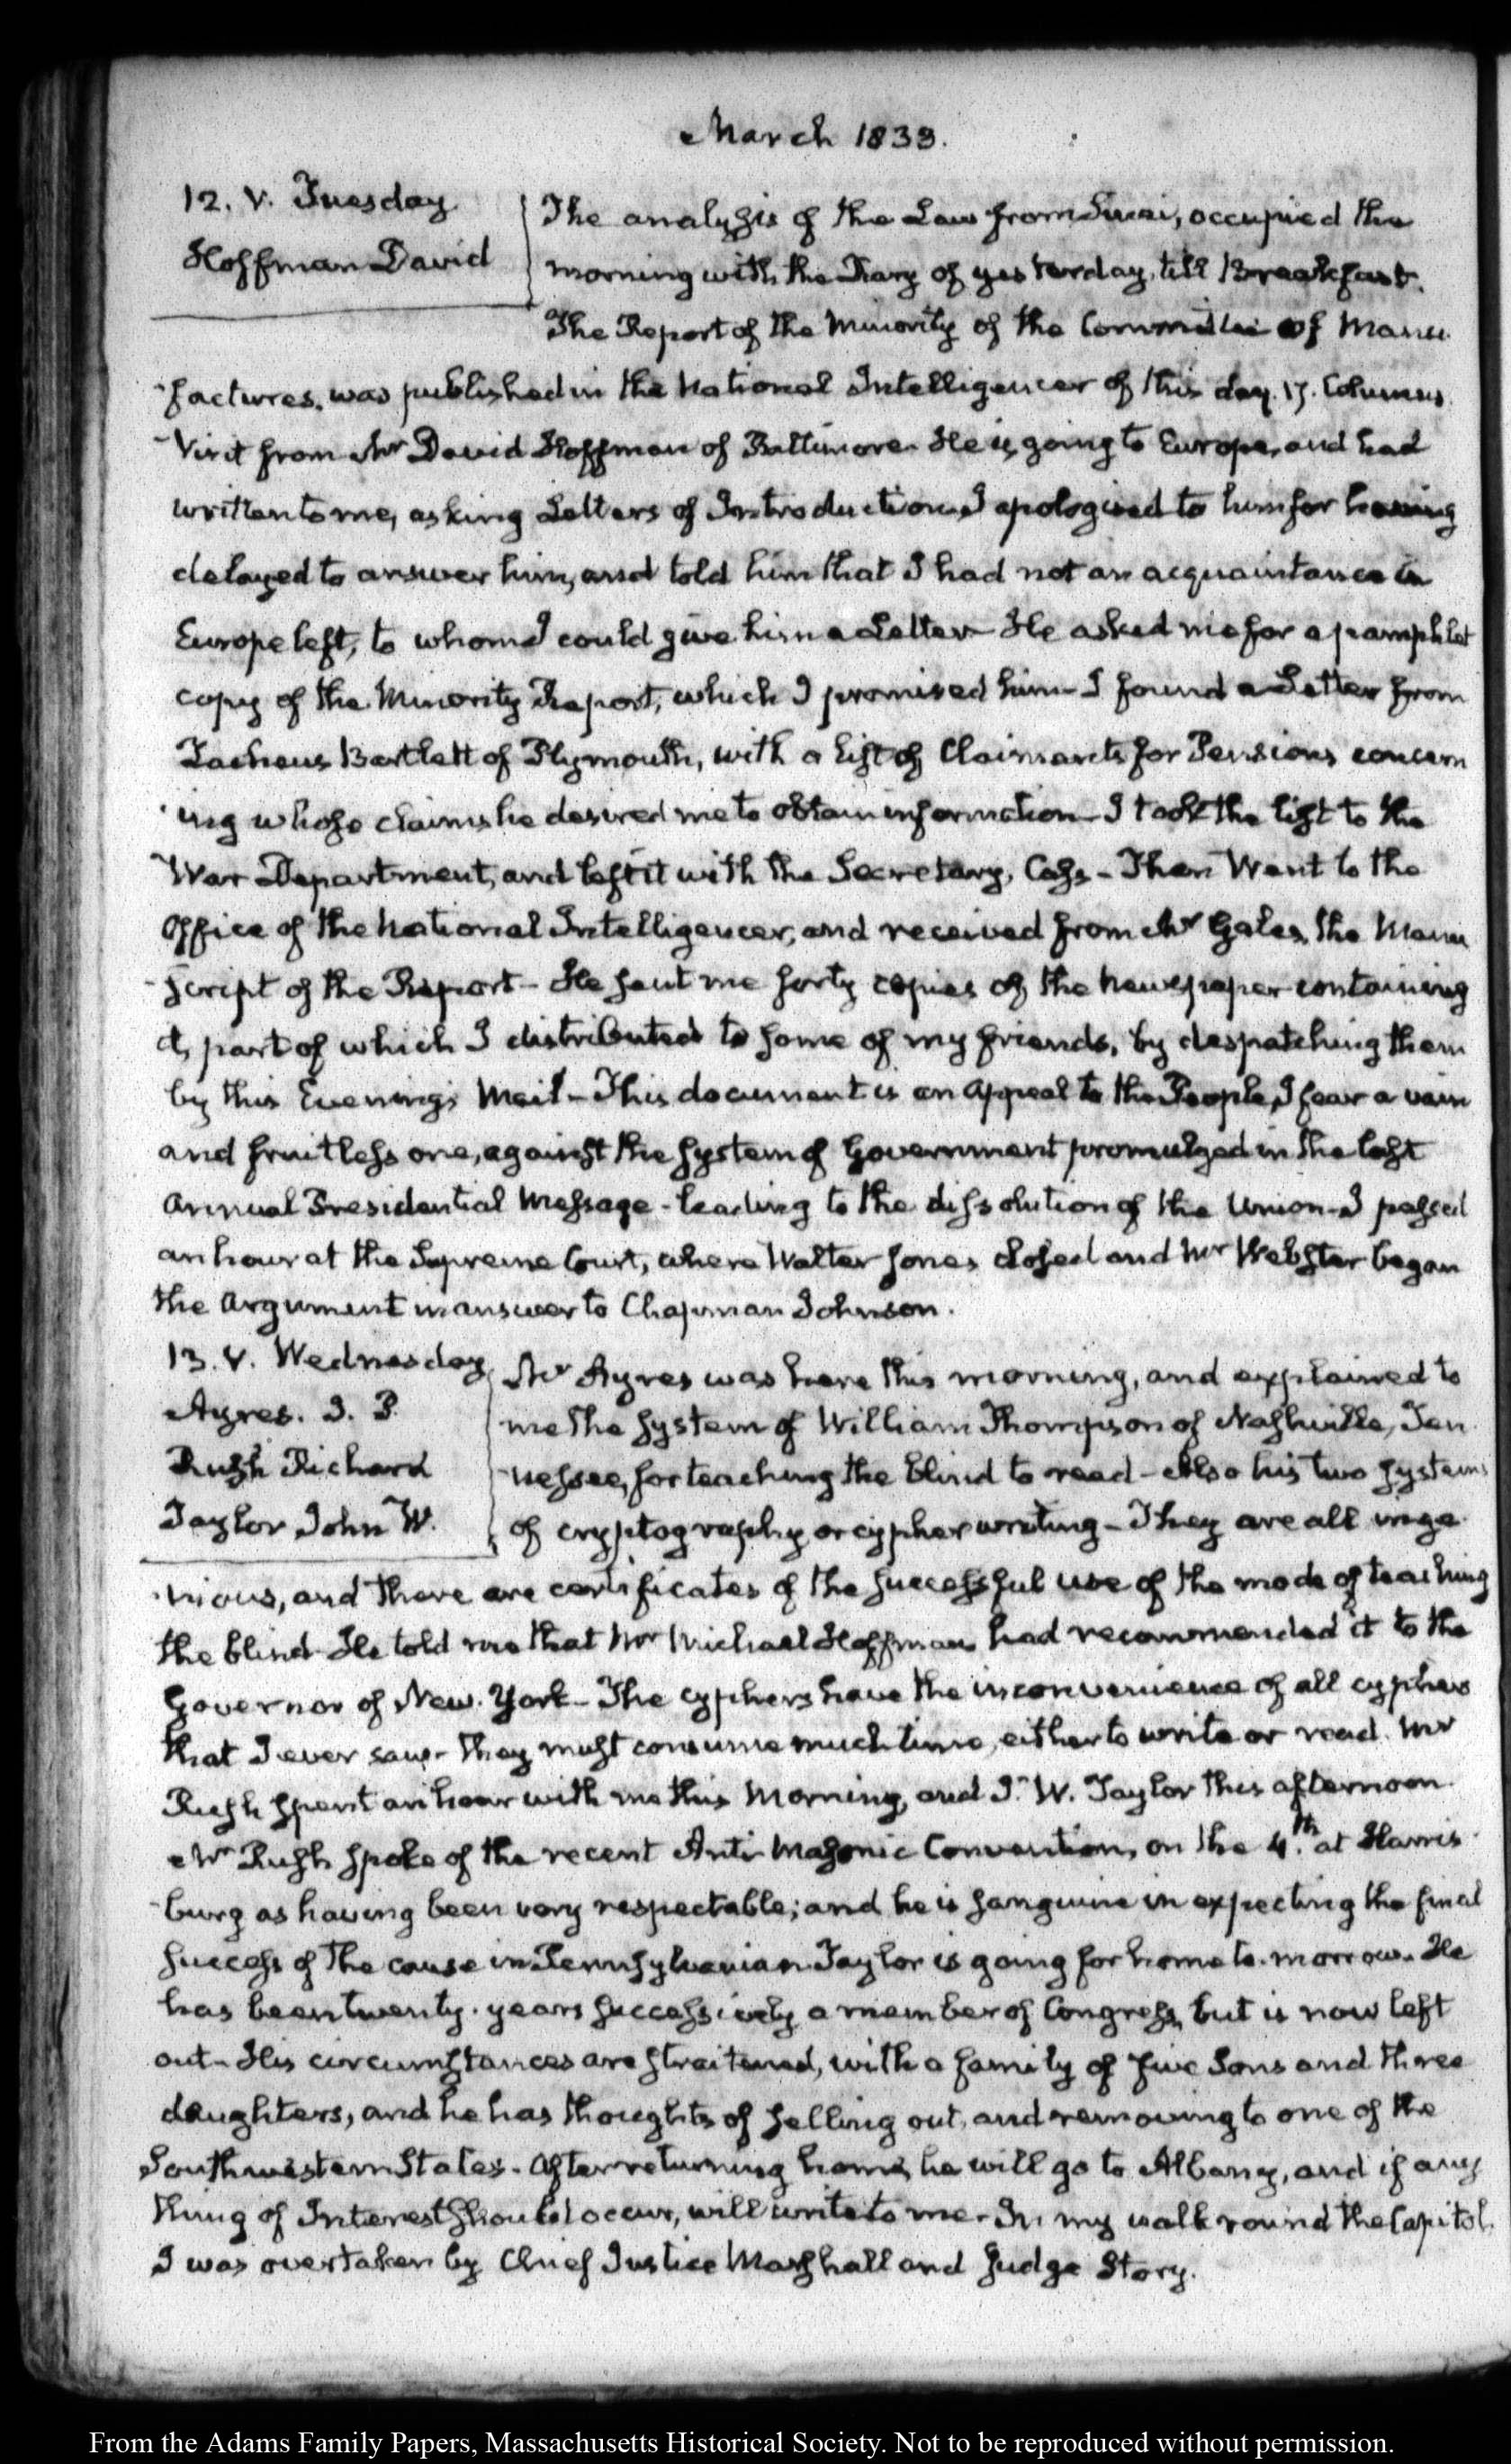 March 1833.
12. V. Tuesday
Hoffman David
The analysis of the Law from Sinai, occupied the
morning with the Diary of yesterday, till Breakfast.
The Report of the Minority of the Committee of Manu
-factures, was published in the National Intelligencer of this day. 17. Columns.
-Visit from Mr David Hoffman of Baltimore. He is going to Europe, and had
written to me, asking Letters of Introduction. I apologised to him for having
delayed to answer him, and told him that I had not an acquaintance in
Europe left, to whom I could give him a Letter- He asked me for a pamphlet
copy of the Minority Report, which I promised him- I found a Letter from
Bartlett of Plymouth, with a List of Claimants for Pensions concern
-ing whose claims he desired me to obtain information- I took the list to the
War Department, and left it with the Secretary, Cass- Then Went to the
Office of the National Intelligencer, and received from Mr Gales, the Manu
-script of the Report- He sent me forty copies of the Newspaper containing
it, part of which I distributed to some of my friends, by despatching them
by this Evening's Mail- This document is an Appeal to the People, I fear a vain
and fruitless one, against the system of Government promulged in the last
Annual Presidential Message- leading to the dissolution of the Union- I passed
an hour at the Supreme Court, where Walter Jones closed and Mr Webster began
the Argument in answer to Chapman Johnson.
13. V. Wednesday
Ayres. I. P.
Rush Richard
Taylor John W.
Mr Ayres was here this morning, and explained to
me the system of William Thompson of Nashville, Ten
-nessee, for teaching the blind to read- Also his two systems
of cryptography or cypher writing- They are all inge
-nious, and there are certificates of the successful use of the mode of teaching
the blind- He told me that Mr Michael Hoffman had recommended it to the
Governor of New-York- The cyphers have the inconvenience of all cyphers
that I ever saw- They must consume much time, either to write or read. Mr
Rush spent an hour with me this Morning, and J. W. Taylor this afternoon.
Mr Rush spoke of the recent Anti-Masonic Convention, on the 4.th at Harris
-burg as having been very respectable; and he is sanguine in expecting the final
success of the cause in Pennsylvania. Taylor is going for home to-morrow. He
has been twenty years successively a member of Congress, but is now left
out- His circumstances are straitened, with a family of five Sons and three
daughters, and he has thoughts of selling out, and removing to one of the
Southwestern States. After returning home, he will go to Albany, and if any
thing of Interest should occur, will write to me- In my walk round the Capitol.
I was overtaken by Chief Justice Marshall and Judge Story.
From the Adams Family Papers, Massachusetts Historical Society. Not to be reproduced without permission.